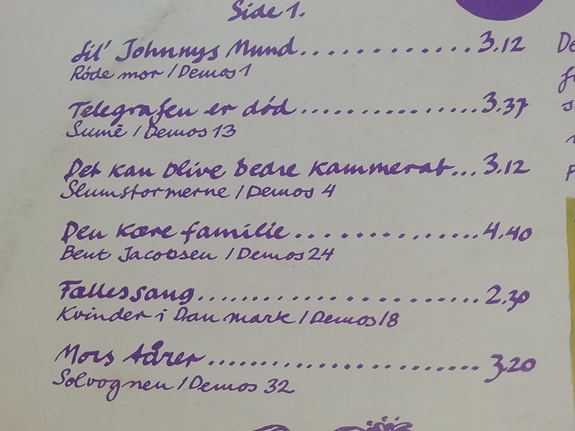 Side 1.
Lil' Johnnys Mund..................3.12
Röde mor / Demos 1
Telegrafen er död..................3.37
Sumē / Demos 13
Det kan blive bedre kammerat...3.12
Slumstormerne / Demos 4
Den kære familie..................4.40
Bent Jacobsen / Demos 24
Fællessang..................2.30
Kvinder i Danmark / Demos 18
Mors tårer..................3.20
Solvognen / Demos 32